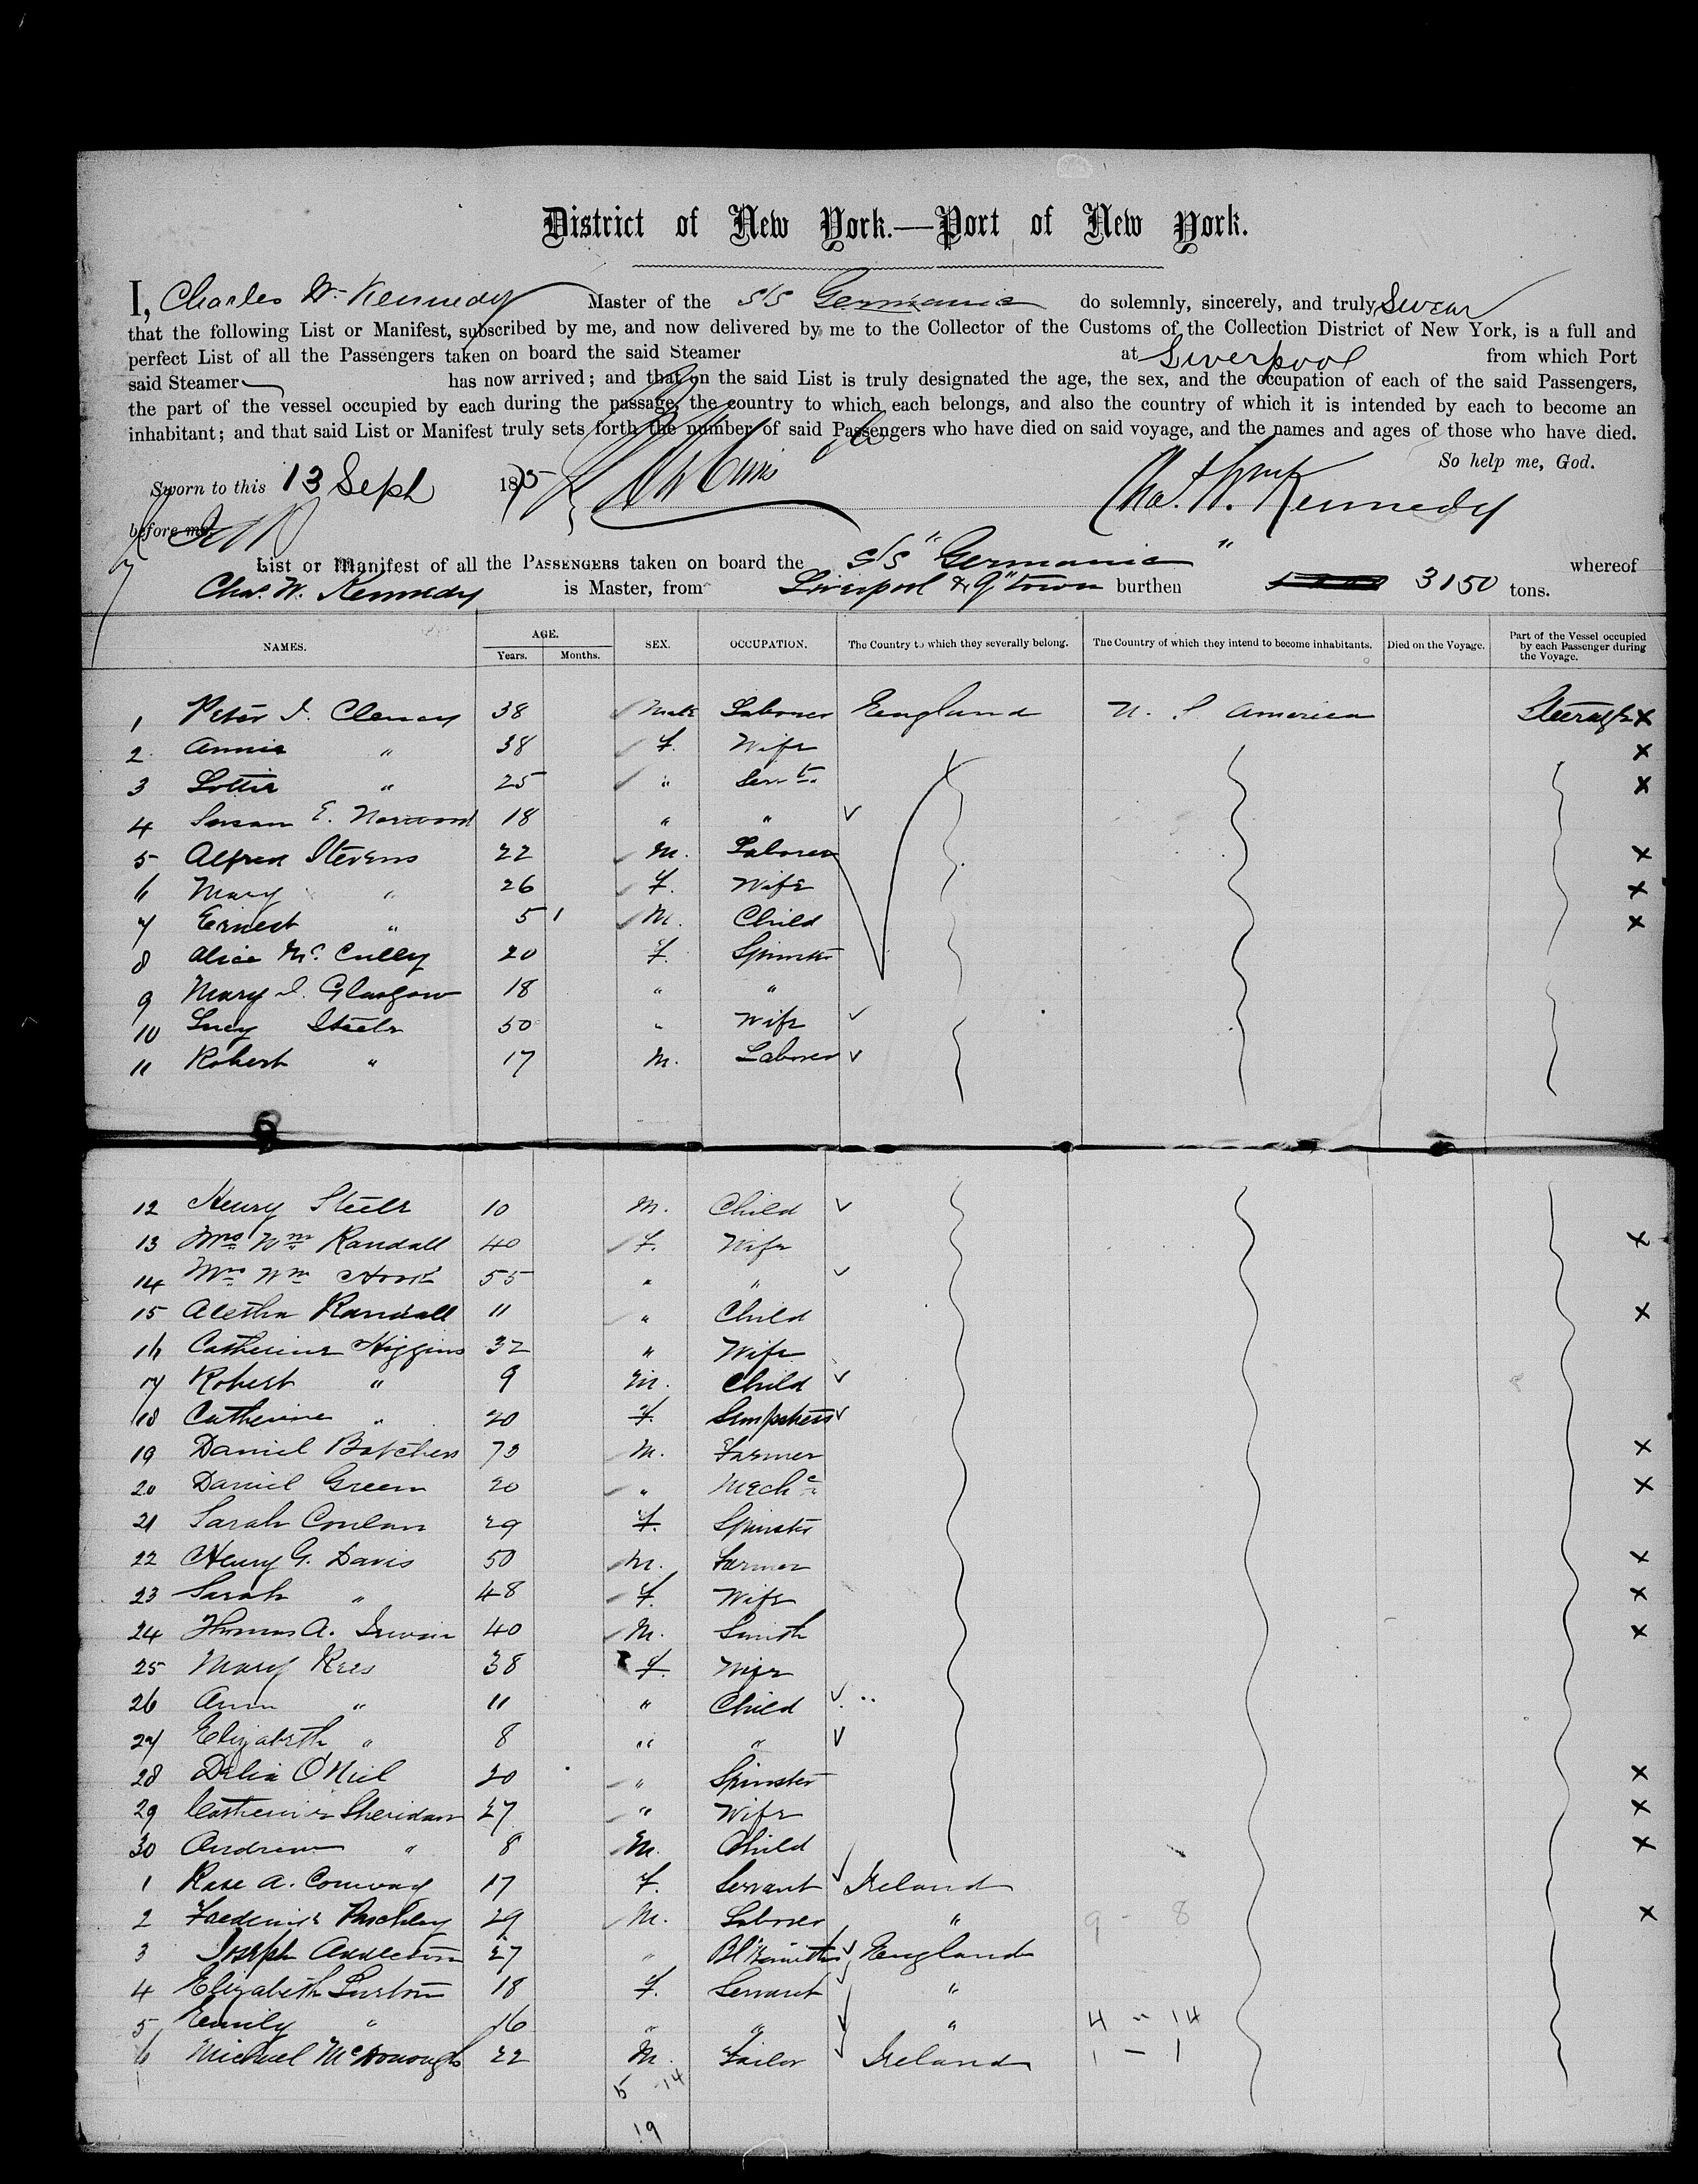 District of New York.—Port of New York.
I, Charles W. Kennedy Master of the S/S Germanic do solemnly, sincerely, and truly Swear
that the following List or Manifest, subscribed by me, and now delivered by me to the Collector of the Customs of the Collection District of New York, is a full and
perfect List of all the Passengers taken on board the said Steamer at Liverpool from which Port
said Steamer has now arrived; and that on the said List is truly designated the age, the sex, and the occupation of each of the said Passengers,
the part of the vessel occupied by each during the passage, the country to which each belongs, and also the country of which it is intended by each to become an
inhabitant; and that said List or Manifest truly sets forth the number of said Passengers who have died on said voyage, and the names and ages of those who have died.
So help me, God.
Sworn to this 13 Sept 1875 Chas. Wm Kennedy
before me
List or Manifest of all the PASSENGERS taken on board the S/S "Germanic" whereof
Chas. W. Kennedy is Master, from Liverpool & Q'town burthen 3150 tons.
NAMES. AGE. Years. Months. SEX. OCCUPATION. The Country to which they severally belong. The Country of which they intend to become inhabitants. Died on the Voyage. Part of the Vessel occupied by each Passenger during the Voyage.
1 Peter J. Clency 38 Male Laborer England U. S America Steerage X
2 Annie " 38 F. Wife X
3 Lottie " 25 " Servt. X
4 Susan E. Norwood 18 " "
5 Alfred Stevens 22 M. Laborer X
6 Mary " 26 F. Wife X
7 Ernest " 5 1 M. Child X
8 Alice Mc Cully 20 F. Spinster
9 Mary J. Glasgow 18 " "
10 Lucy Steele 50 " Wife
11 Robert " 17 M. Laborer
12 Henry Steele 10 M. Child
13 Mrs Wm Randall 40 F. Wife X
14 Mrs Wm 55 " "
15 Aletha Randall 11 " Child X
16 Catherine Higgins 32 " Wife
17 Robert " 9 M. Child
18 Catherine " 20 F. Sempstress
19 Daniel 73 M. Farmer X
20 Daniel Green 20 " Mechc X
21 Sarah Conlan 29 F. Spinster
22 Henry G. Davis 50 M. Farmer X
23 Sarah " 48 F. Wife X
24 Thomas A. 40 M. Smith X
25 Mary Rees 38 F. Wife
26 Ann " 11 " Child
27 Elizabeth " 8 " "
28 Delia O'Niel 20 " Spinster X
29 Catherine Sheridan 27 " Wife X
30 Andrew " 8 M. Child X
1 Rose A. Conway 17 F. Servant Ireland
2 Frederick 29 M. Laborer " 9 - 8 X
3 Joseph Addleton 27 " Bl'ksmith England
4 Elizabeth Lurton 18 F. Servant "
5 Emily " 16 " " " 4 " 14
6 Michael McDonough 22 M. Tailor Ireland 1 - 1
5 14
19